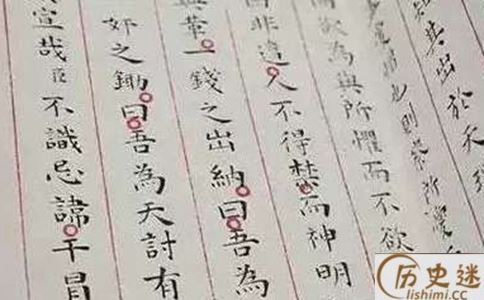 其出於天
欲為與所懼而不欲
非遠人不得而神明
革一錢之出納曰吾為
奸之鋤曰吾為天討有
宣哉臣不識忌諱干冒
历史迷
lishimi.cc